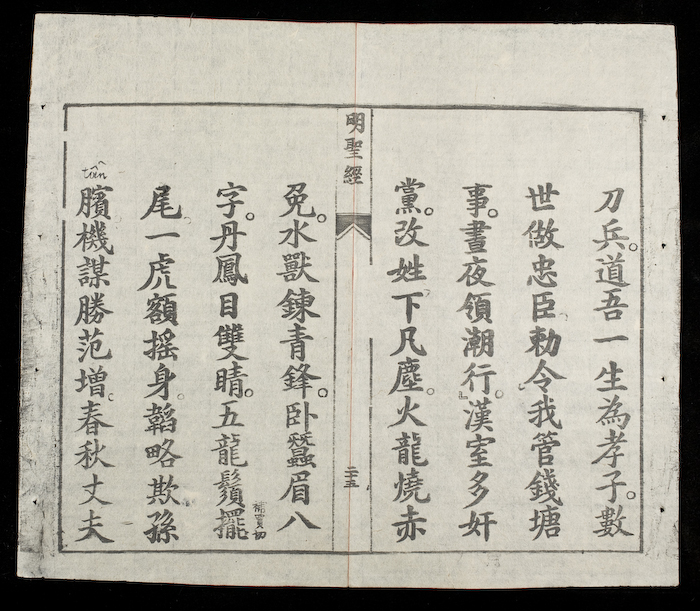 刀兵。道吾一生為孝子。數
世做忠臣。勅令我管錢塘
事。晝夜領潮行。漢室多奸
黨。改姓下凡塵。火龍燒赤
明聖經
二十五
免。水獸鍊青鋒。卧蠶眉八
字。丹鳳目雙睛。五龍鬚擺
補買切
尾。一虎額搖身。韜略欺孫
臏。機謀勝范增。春秋丈夫